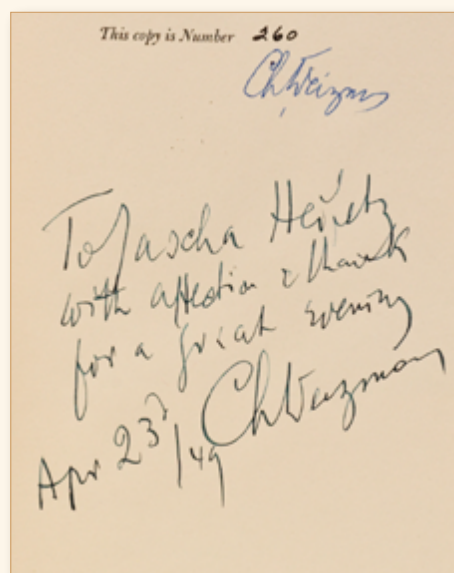 This copy is Number 260
Ch Weizmann
To Jascha Heifetz
with affection & thanks
for a great evening
Ch Weizmann
Apr 23d/49